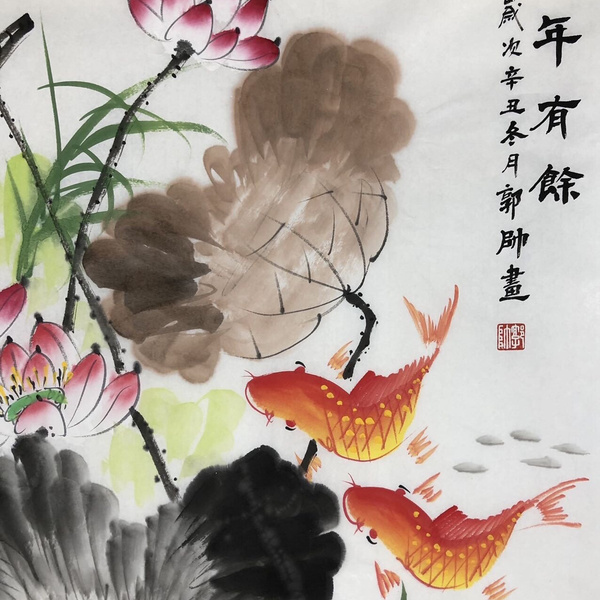 年有餘
歲次辛丑冬月郭帥畫
郭帥